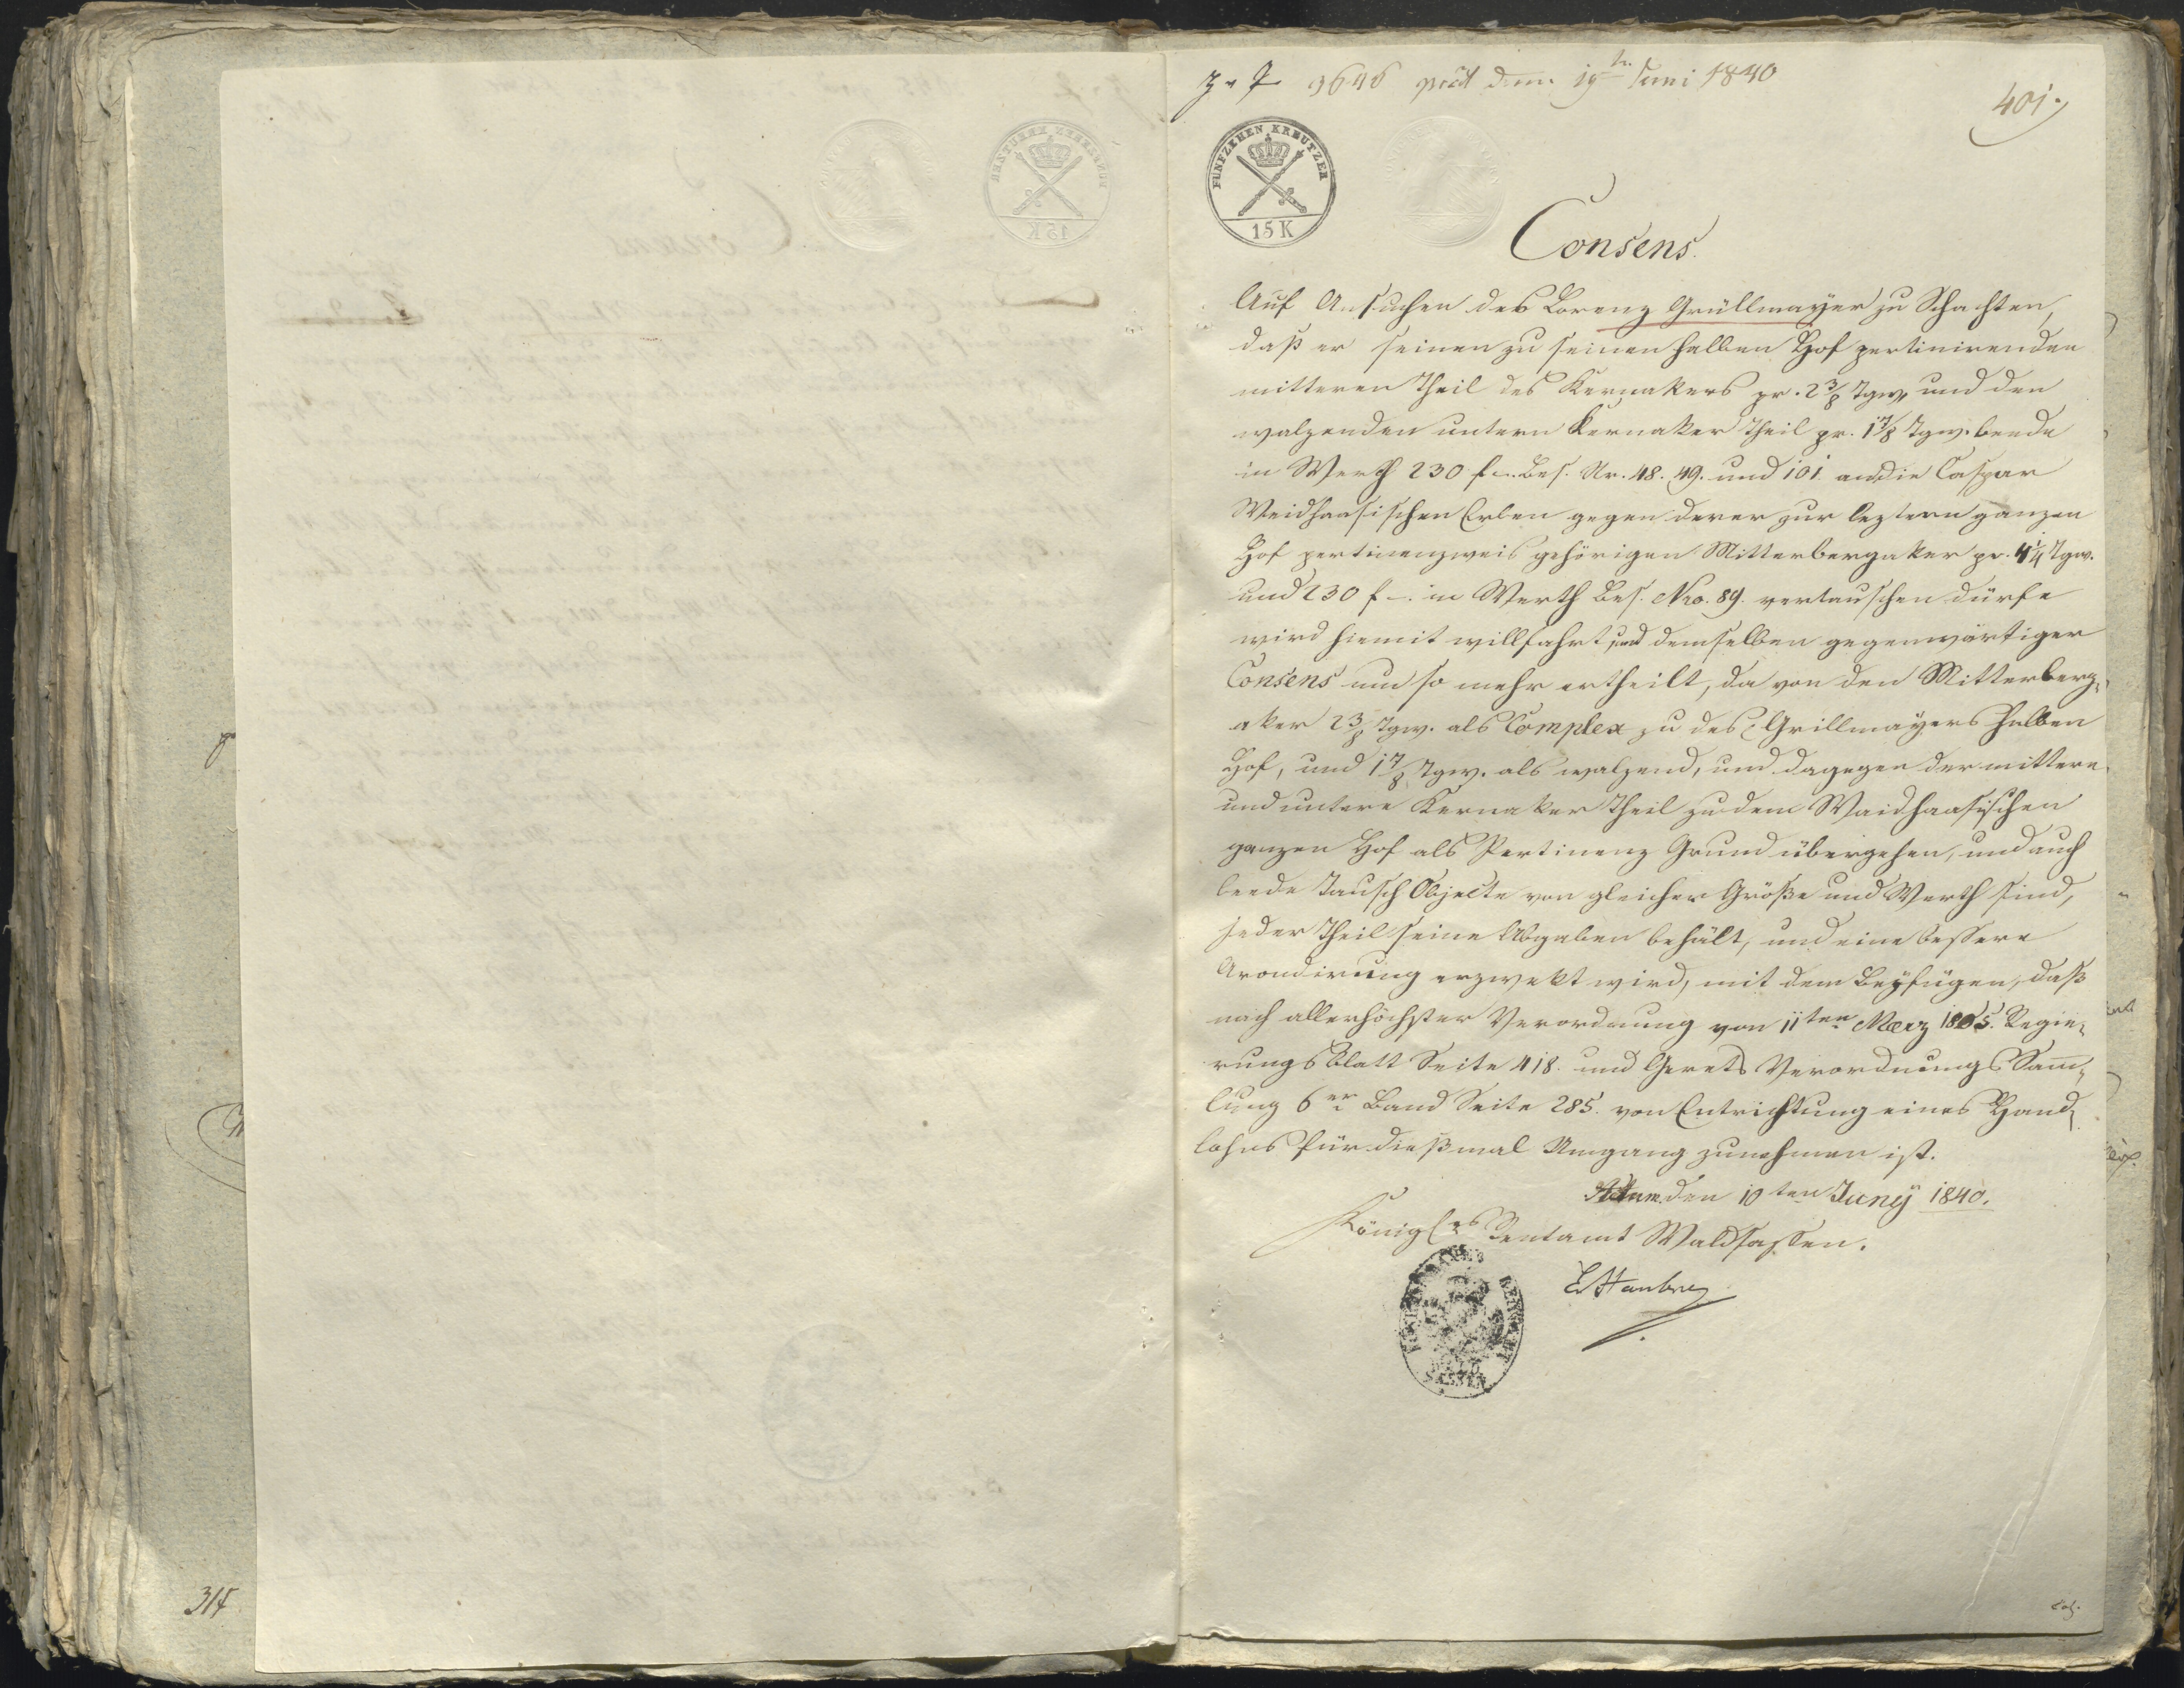 9646 präs. dem 19t. Juni 1840
401.
FUNFZEHEN KREUTZER
15 K
Consens.
Auf Ansuchen des Lorenz Grüllmayer zu Schachten,
daß er seinen zu seinen halben Hof pertinirenden
mitteren Theil des Kernakers pr. 2 3/8 Tgw. und den
walzenden untern Kernaker Theil pr. 1 7/8 Tgw. beede
in Werth 230 f -. Bes. Nr. 48. 49. und 101. an die Caspar
Weidhaasischen Erben gegen derer zur leztern ganzen
Hof pertinenzweis gehörigen Mitterbergaker pr. 4 1/4 Tgw.
und 230 f -. in Werth Bes. Nro. 89. vertauschen dürfe
wird hiemit willfahrt, und demselben gegenwärtiger
Consens um so mehr ertheilt, da von den Mitterberg-
aker 2 3/8 Tgw. als Complex zu des Grillmayers halben
Hof, und 1 7/8 Tgw. als walzend, und dagegen der mittere
und untere Kernaker Theil zu dem Waidhaasischen
ganzen Hof als Pertinenz Grund übergehen, und auch
beede Tausch Objecte von gleicher Größe und Werth sind,
jeder Theil seine Abgaben behält, und eine bessere
Arondirung erzwekt wird, mit dem Beyfügen, daß
nach allerhöchster Verordnung von 11ten Merz 1805. Regie-
rungsblatt Seite 418. und Gerets Verordnungs Sam̅-
lung 6er Band Seite 285. von Entrichtung eines Hand-
lohns für dießmal Umgang zunehmen ist.
Actum den 10ten Juny 1840.
Königles Rentamt Waldsassen.
SASSEN
314